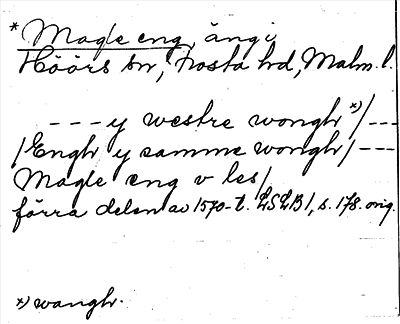 * Magle eng, äng i
Höörs sn, Frosta hd, Malm. l.
--- y westre wongh *)/---
/Engh y samme wongh/---
Magle eng v les/
förra delen av 1570-t. LSLB1, s. 178. orig.
*) wangh.